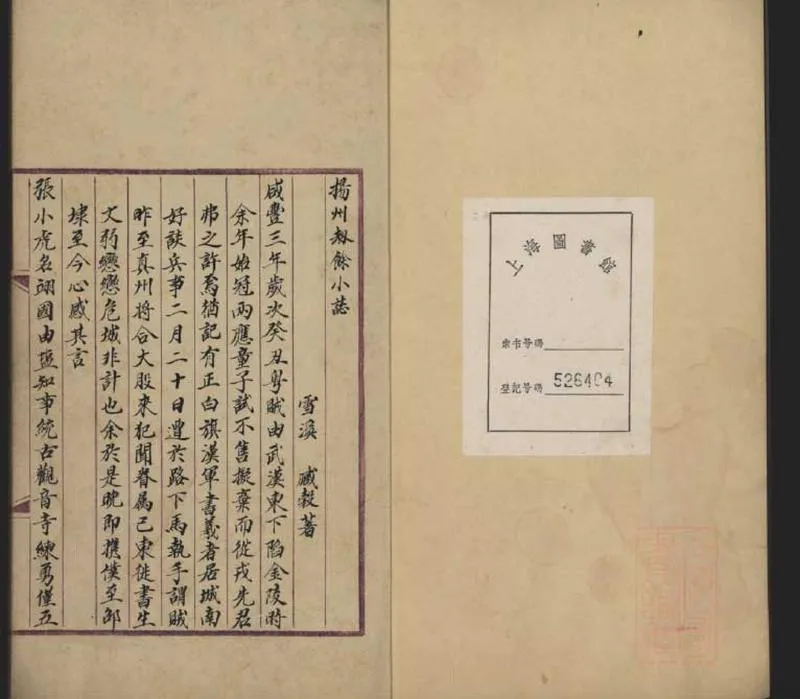 揚州劫餘小誌
雪溪　臧穀著
咸豐三年歲次癸丑粤賊由武漢東下陷金陵時
余年始冠兩應童子試不售擬棄而從戎先君
弗之許焉猶記有正白旗漢軍書羲者居城南
好談兵事二月二十日遭於路下馬執手謂賊
昨至真州將合大股來犯聞眷属已東徙書生
文弱戀戀危城非計也余於是晚即携僕至邵
埭至今心感其言
張小虎名翊國由鹽知事統古觀音寺練勇僅五
上海圖書館
索书号碼
登記号碼 526404